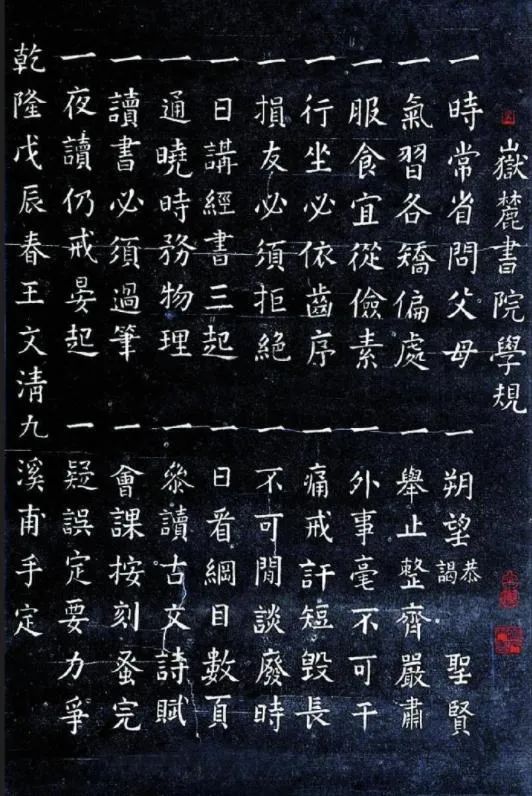 嶽麓書院學規
一時常省問父母 一朔望恭謁聖賢
一氣習各矯偏處 一舉止整齊嚴肅
一服食宜從儉素 一外事毫不可干
一行坐必依齒序 一痛戒訐短毀長
一損友必須拒絕 一不可閒談廢時
一日講經書三起 一日看綱目數頁
一通曉時務物理 一參讀古文詩賦
一讀書必須過筆 一會課按刻蚤完
一夜讀仍戒晏起 一疑誤定要力爭
乾隆戊辰春王文清九溪甫手定